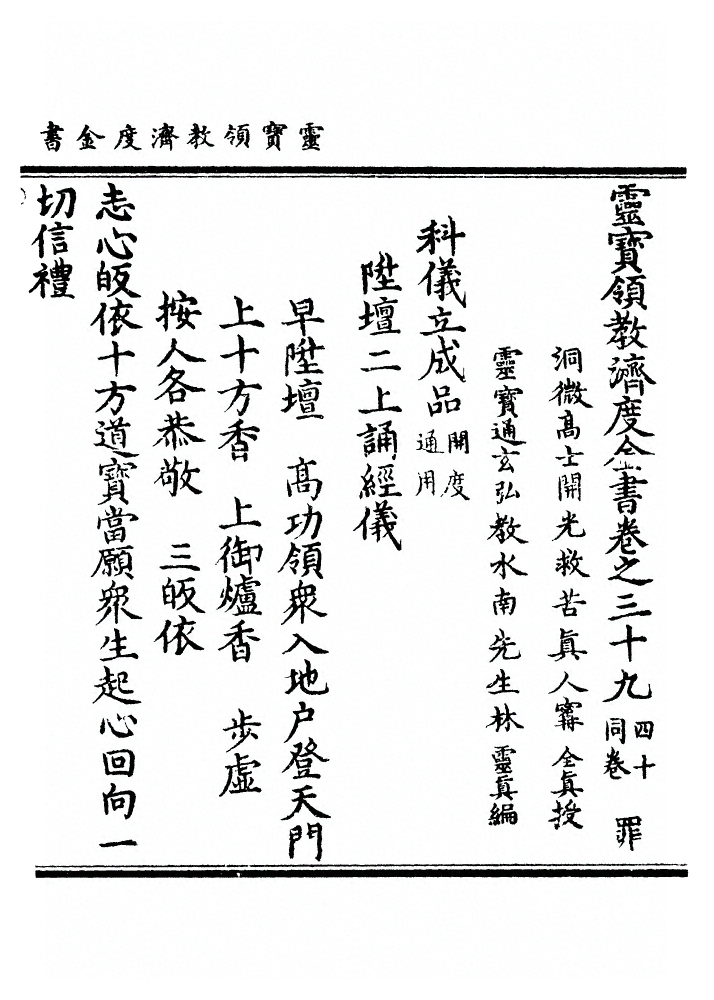 靈寶領教濟度金書
靈寶領教濟度金書卷之三十九 四十同卷 罪
洞微高士開光救苦眞人寗 全眞授
靈寶通玄弘教水南先生林 靈眞編
科儀立成品 開度通用
陞壇二上誦經儀
早陞壇 高功領衆入地户登天門
上十方香 上御爐香 步虛
按人各恭敬 三皈依
志心皈依十方道寶當願衆生起心回向一
切信禮